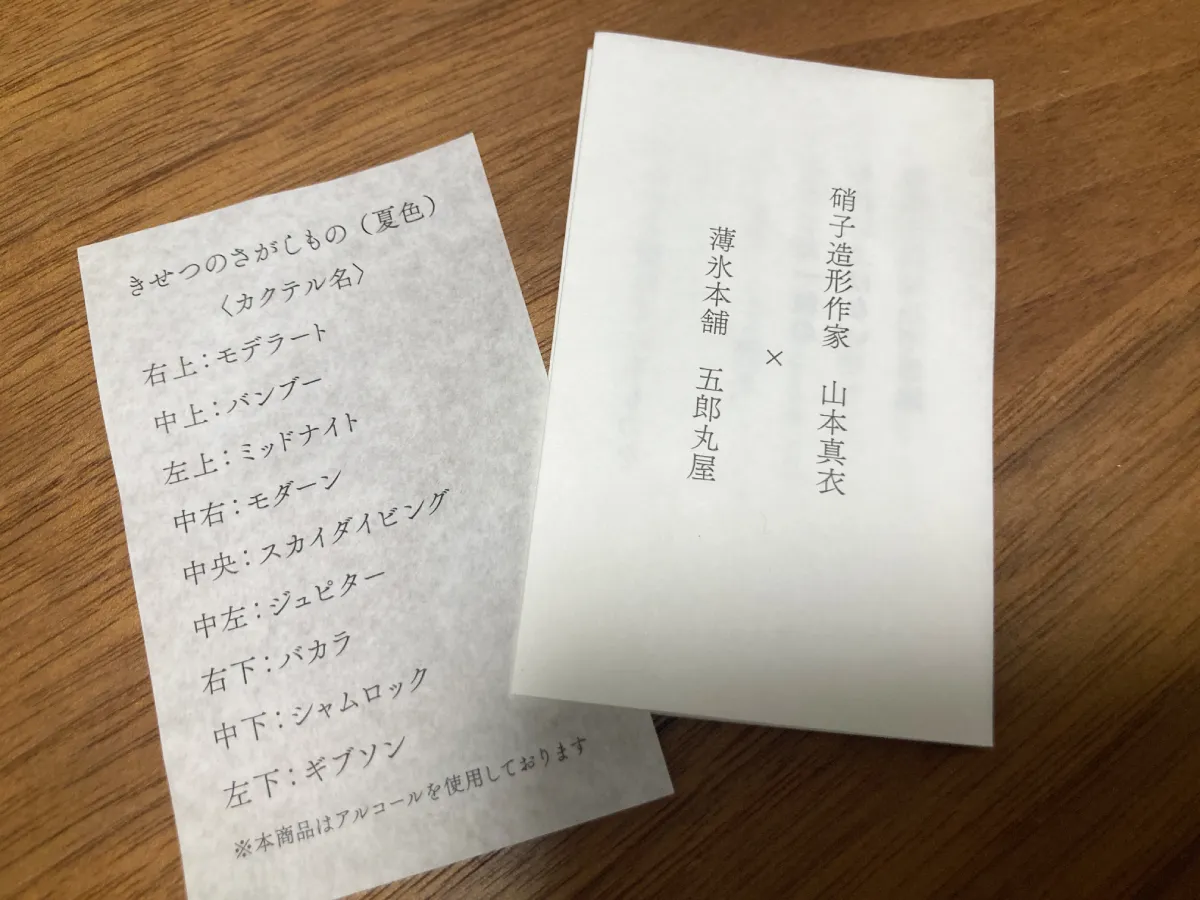 きせつのさがしもの（夏色）
〈カクテル名〉
右上：モデラート
中上：バンブー
左上：ミッドナイト
中右：モダーン
中央：スカイダイビング
中左：ジュピター
右下：バカラ
中下：シャムロック
左下：ギブソン
※本商品はアルコールを使用しております
硝子造形作家　山本真衣
×
薄氷本舗　五郎丸屋